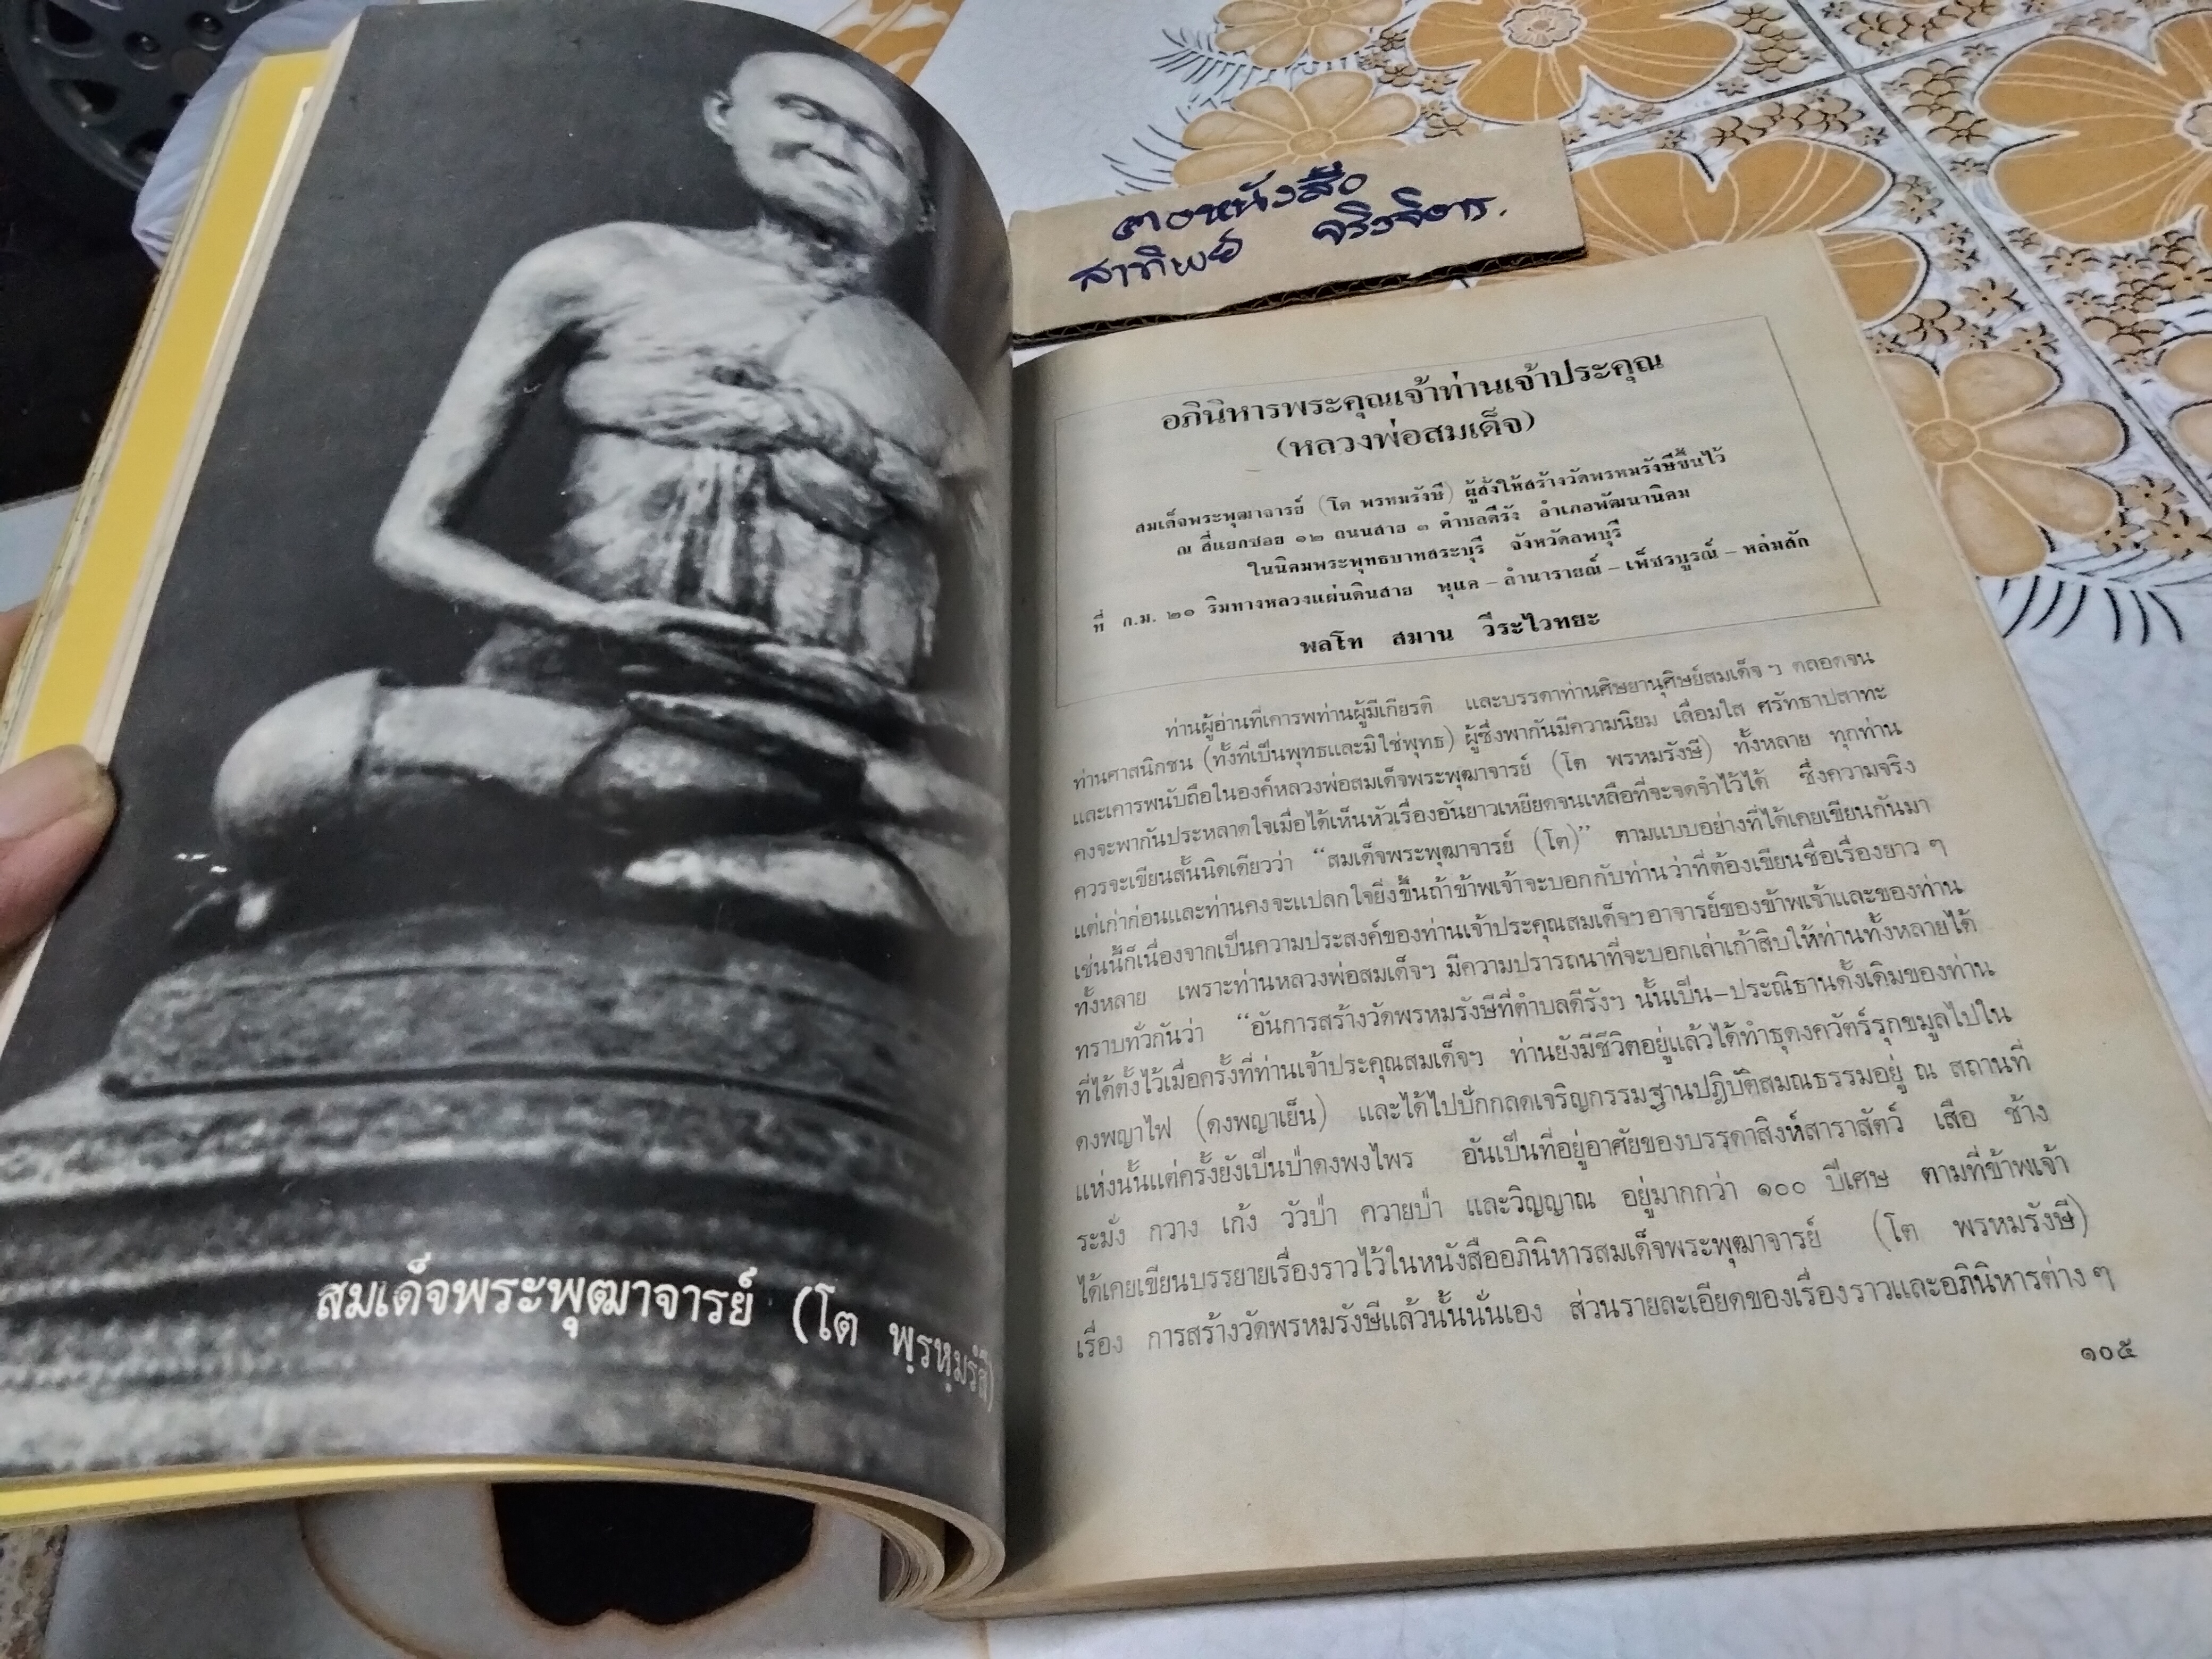 สมเด็จพระพุฒาจารย์ (โต พฺรหฺมรํสี)
ตอหนังสือ
สาทิพย์ จริงจิตร.
อภินิหารพระคุณเจ้าท่านเจ้าประคุณ
(หลวงพ่อสมเด็จ)
สมเด็จพระพุฒาจารย์ (โต พรหมรังษี) ผู้สั่งให้สร้างวัดพรหมรังษีขึ้นไว้
ณ สี่แยกซอย ๑๒ ถนนสาย ๓ ตำบลดีรัง อำเภอพัฒนานิคม
ในนิคมพระพุทธบาทสระบุรี จังหวัดลพบุรี
ที่ ก.ม. ๒๑ ริมทางหลวงแผ่นดินสาย พุแค – ลำนารายณ์ – เพ็ชรบูรณ์ – หล่มสัก
พลโท สมาน วีระไวทยะ
ท่านผู้อ่านที่เคารพท่านผู้มีเกียรติ และบรรดาท่านศิษยานุศิษย์สมเด็จ ฯ ตลอดจน
ท่านศาสนิกชน (ทั้งที่เป็นพุทธและมิใช่พุทธ) ผู้ซึ่งพากันมีความนิยม เลื่อมใส ศรัทธาปสาทะ
และเคารพนับถือในองค์หลวงพ่อสมเด็จพระพุฒาจารย์ (โต พรหมรังษี) ทั้งหลาย ทุกท่าน
คงจะพากันประหลาดใจเมื่อได้เห็นหัวเรื่องอันยาวเหยียดจนเหลือที่จะจดจำไว้ได้ ซึ่งความจริง
ควรจะเขียนสั้นนิดเดียวว่า “สมเด็จพระพุฒาจารย์ (โต)” ตามแบบอย่างที่ได้เคยเขียนกันมา
แต่เก่าก่อนและท่านคงจะแปลกใจยิ่งขึ้นถ้าข้าพเจ้าจะบอกกับท่านว่าที่ต้องเขียนชื่อเรื่องยาว ๆ
เช่นนี้ก็เนื่องจากเป็นความประสงค์ของท่านเจ้าประคุณสมเด็จฯ อาจารย์ของข้าพเจ้าและของท่าน
ทั้งหลาย เพราะท่านหลวงพ่อสมเด็จฯ มีความปรารถนาที่จะบอกเล่าเก้าสิบให้ท่านทั้งหลายได้
ทราบทั่วกันว่า “อันการสร้างวัดพรหมรังษีที่ตำบลดีรังฯ นั้นเป็น–ประณิธานดั้งเดิมของท่าน
ที่ได้ตั้งไว้เมื่อครั้งที่ท่านเจ้าประคุณสมเด็จฯ ท่านยังมีชีวิตอยู่แล้วได้ทำธุดงควัตร์รุกขมูลไปใน
ดงพญาไฟ (ดงพญาเย็น) และได้ไปปักกลดเจริญกรรมฐานปฏิบัติสมณธรรมอยู่ ณ สถานที่
แห่งนั้นแต่ครั้งยังเป็นป่าดงพงไพร อันเป็นที่อยู่อาศัยของบรรดาสิงห์สาราสัตว์ เสือ ช้าง
ระมั่ง กวาง เก้ง วัวป่า ควายป่า และวิญญาณ อยู่มากกว่า ๑๐๐ ปีเศษ ตามที่ข้าพเจ้า
ได้เคยเขียนบรรยายเรื่องราวไว้ในหนังสืออภินิหารสมเด็จพระพุฒาจารย์ (โต พรหมรังษี)
เรื่อง การสร้างวัดพรหมรังษีแล้วนั้นนั่นเอง ส่วนรายละเอียดของเรื่องราวและอภินิหารต่าง ๆ
๑๐๕